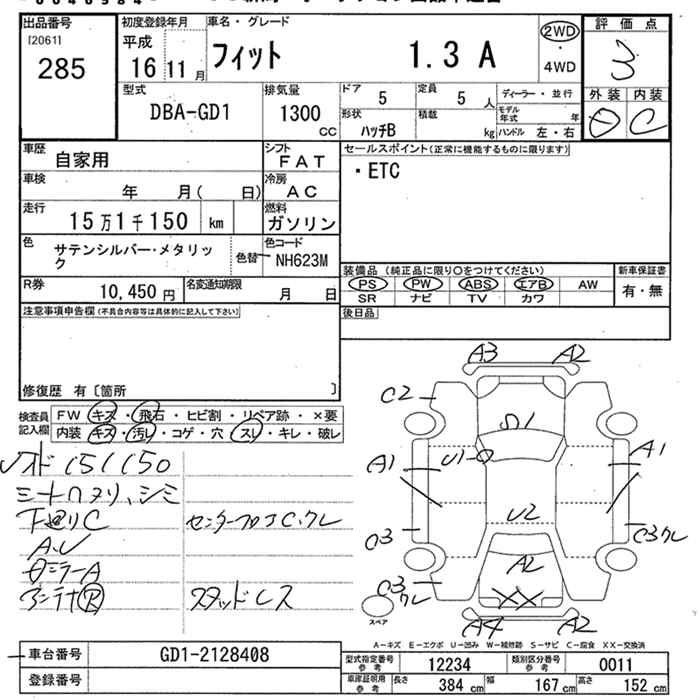 出品番号
[2061]
285
初度登録年月
平成
16 11月
車名・グレード
フィット 1.3 A
2WD
・
4WD
評価点
3
外装 内装
D C
型式
DBA-GD1
排気量
1300
CC
ドア
5
定員
5 人
ディーラー・並行
形状
ハッチB
積載
kg
モデル年式
年
ハンドル 左・右
車歴
自家用
シフト
FAT
セールスポイント(正常に機能するものに限ります)
・ETC
車検
年 月( 日)
冷房
AC
走行
15万1千150 km
燃料
ガソリン
色
サテンシルバー・メタリッ
ク
色替
色コード
NH623M
装備品(純正品に限り○をつけてください)
PS PW ABS エアB AW
SR ナビ TV カワ
新車保証書
有・無
R券
10,450 円
名変通知期限
月 日
後日品
注意事項申告欄(不具合内容等は具体的に記入して下さい)
修復歴 有〔箇所 〕
検査員
記入欄
FW キズ・飛石・ヒビ割・リペア跡・×要
内装 キズ・汚レ・コゲ・穴・スレ・キレ・破レ
151150
下廻りC
センターフロアC.クレ
A.U
ミラーA
アンテナR
スタッドレス
A3 A2
C2
S1
A1 U1 A1
U2
C3 C3クレ
A2
C3
クレ
XX
A4 A2
スペア
A-キズ E-エクボ U-凹み W-補修跡 S-サビ C-腐食 XX-交換済
車台番号
GD1-2128408
登録番号
型式指定番号
参考
12234
類別区分番号
参考
0011
車庫証明用
参考
長さ
384 cm
幅
167 cm
高さ
152 cm